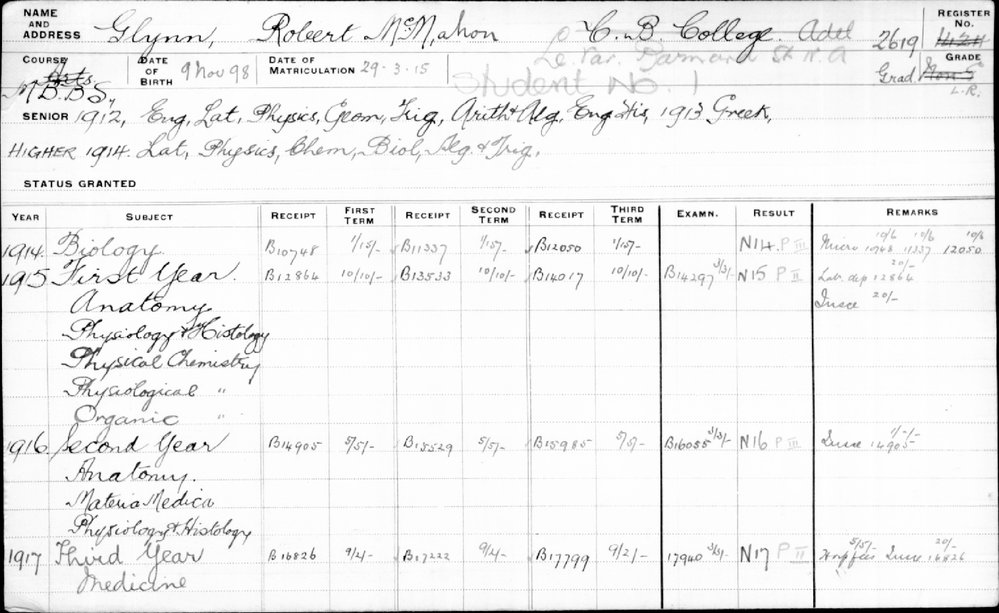 NAME AND ADDRESS Glynn, Robert McMahon C. B. College. Adel 2619 REGISTER No.
Le Var. Barnard St N.A
COURSE Arts DATE OF BIRTH 9 Nov 98 DATE OF MATRICULATION 29-3-15 Student No. 1 Grad GRADE Non G
M.B.B.S. L.R.
SENIOR 1912, Eng, Lat, Physics, Geom, Trig, Arith & Alg, Eng His, 1913 Greek,
HIGHER 1914. Lat, Physics, Chem, Biol, Alg. & Trig.
STATUS GRANTED
YEAR SUBJECT RECEIPT FIRST TERM RECEIPT SECOND TERM RECEIPT THIRD TERM EXAMN. RESULT REMARKS
10/6 10/6 10/6
1914. Biology B10748 1/15/- B11337 1/15/- B12050 1/15/- N14 P III Micro 10948 11337 12050
1915 First Year B12864 10/10/- B13533 10/10/- B14017 10/10/- B14297 3/3/- N15 P II Lab. dep 12864 20/-
Anatomy Insce 20/-
Physiology & Histology
Physical Chemistry
Physiological "
Organic "
1916 Second Year B14905 5/5/- B15529 5/5/- B15985 5/5/- B16055 3/3/- N16 P III Insce 14905 1/-/-
Anatomy.
Materia Medica
Physiology & Histology
1917 Third Year B16826 9/2/- B17222 9/2/- B17799 9/2/- 17940 3/3/- N17 P II Hosp fees 5/5/- Insce 16826 20/-
Medicine